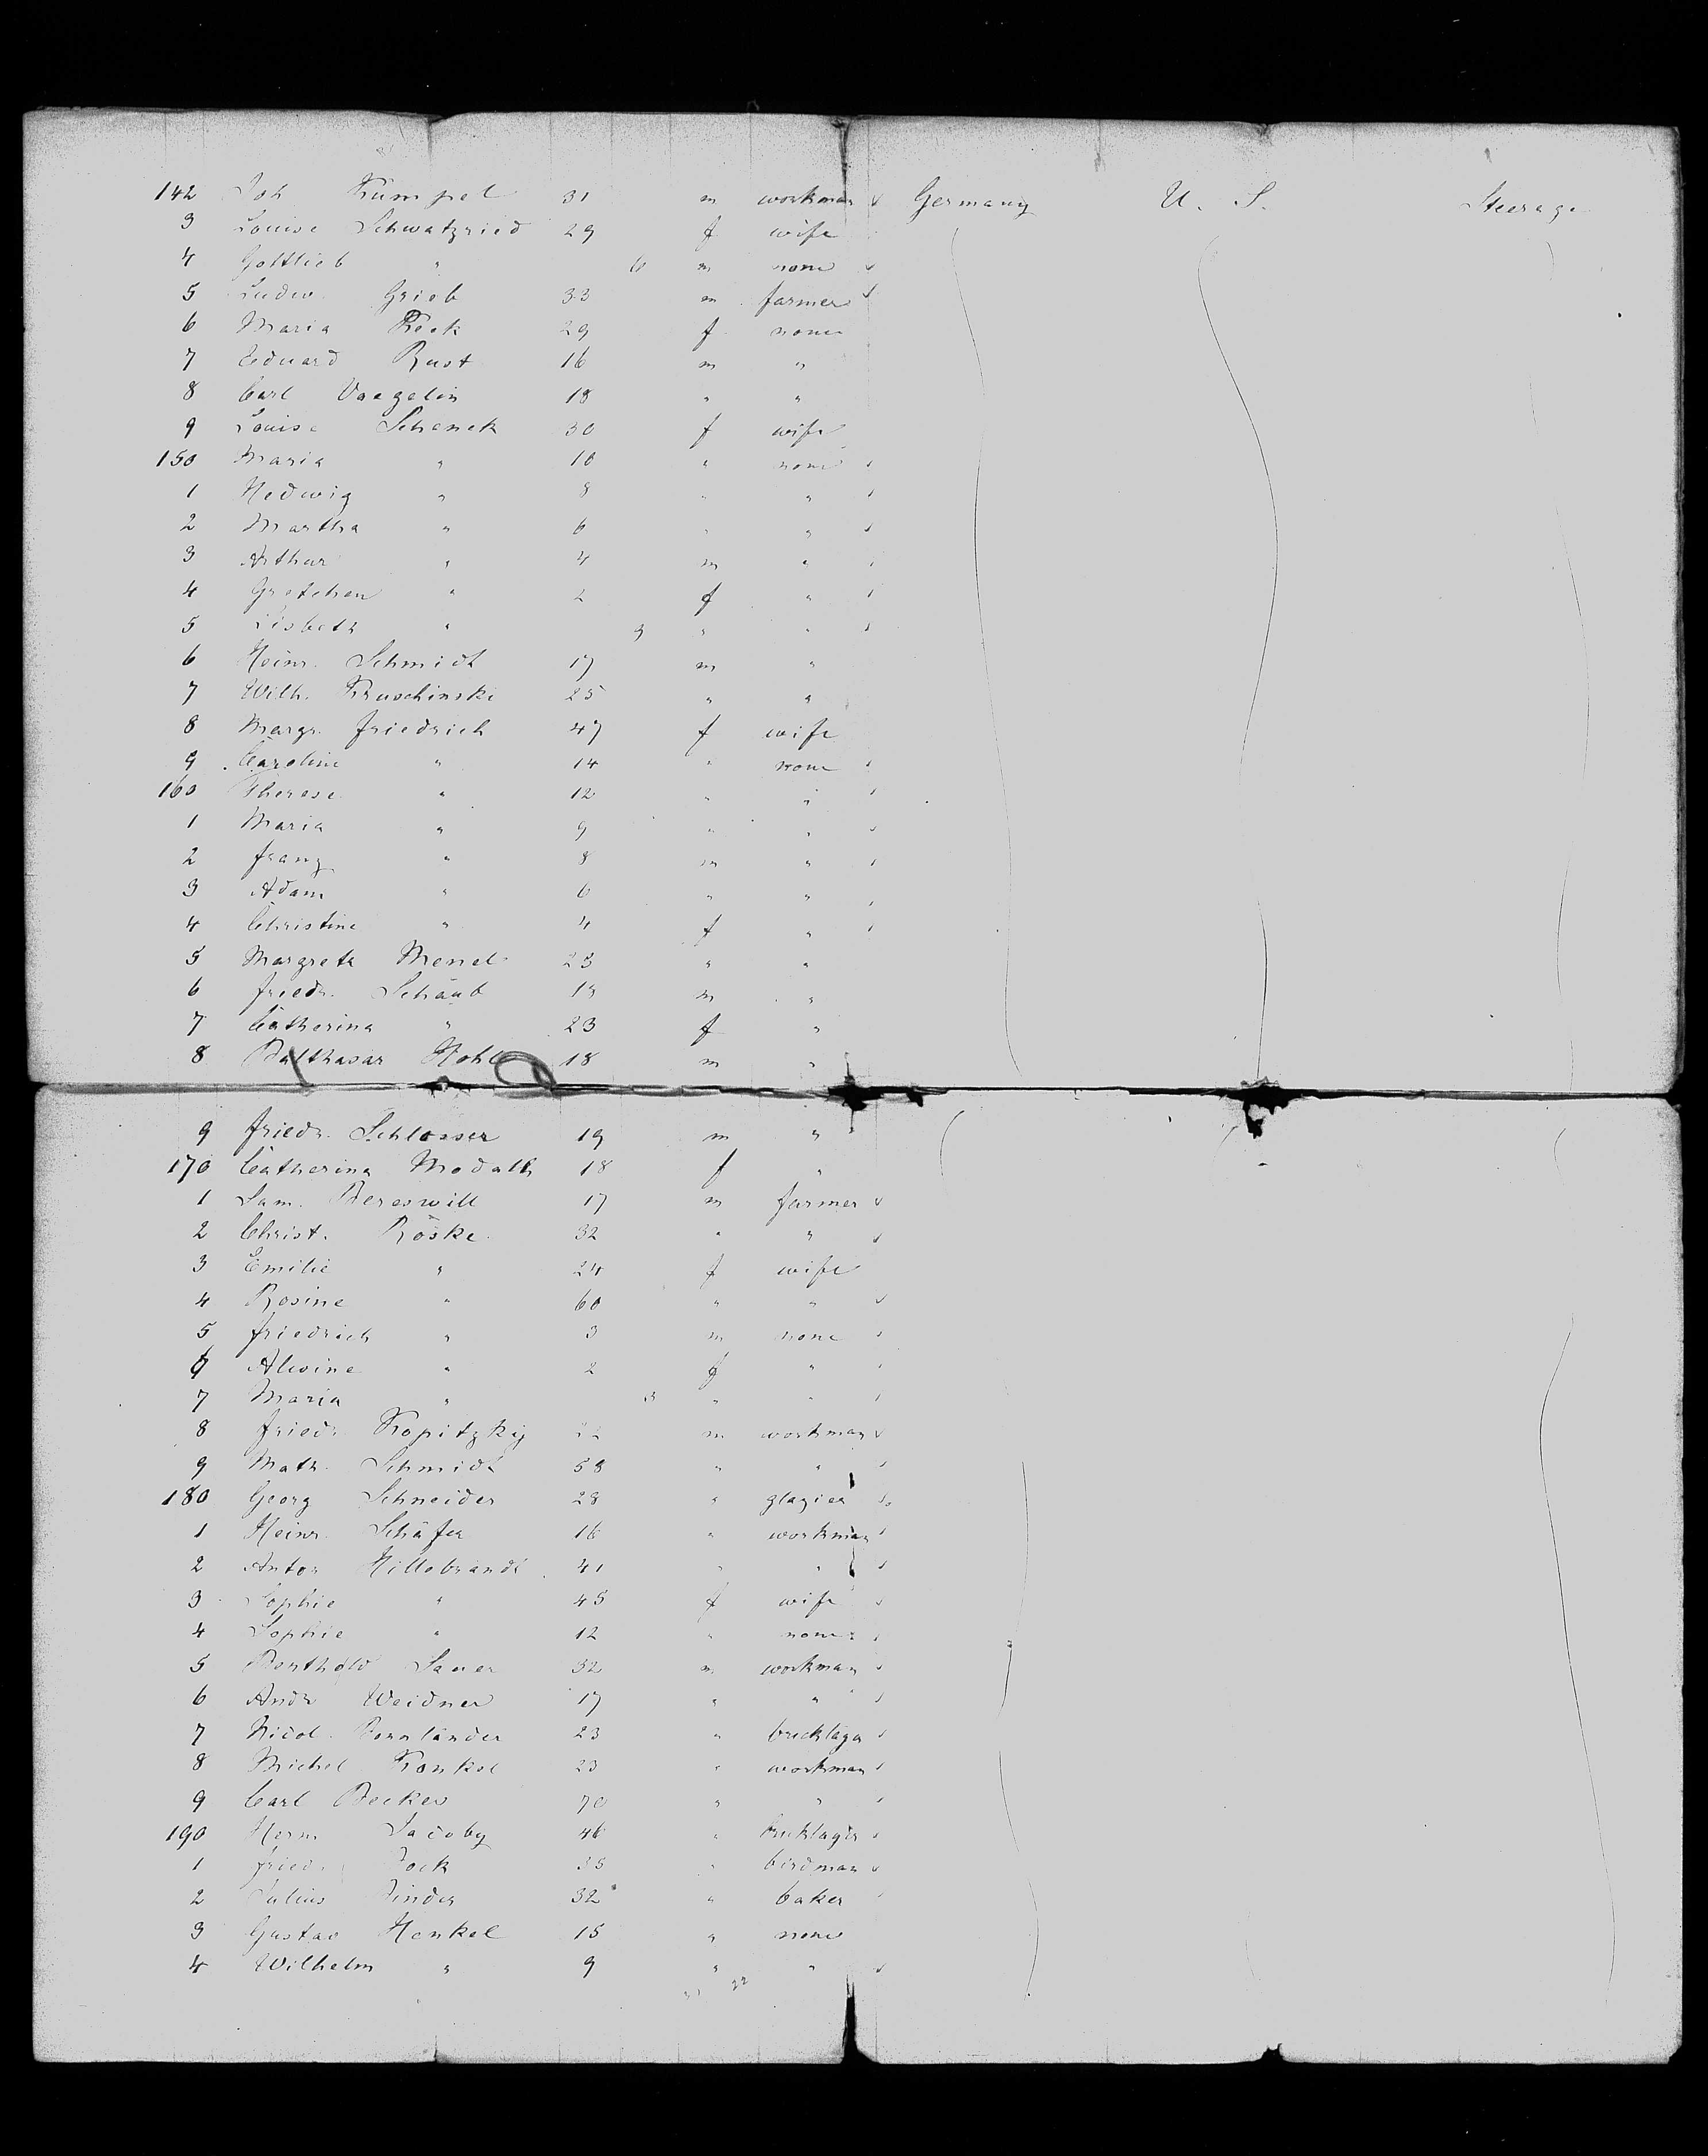 142 Joh Kümpel 31 m workman Germany U. S. Steerage
3 Louise Schwatzried 29 f wife
4 Gottlieb " 6 m none
5 Ludw. Grieb 33 m farmer
6 Maria Keck 29 f none
7 Eduard Rust 16 m "
8 Carl Vaegelin 18 " "
9 Louise Schenck 30 f wife
150 Maria " 10 " none
1 Hedwig " 8 " "
2 Martha " 6 " "
3 Arthur " 4 m "
4 Gretchen " 2 f "
5 Lisbeth " 9 " "
6 Heinr. Schmidt 17 m "
7 Wilh. Kruschinski 25 " "
8 Margr. Friedrich 47 f wife
9 Caroline " 14 " none
160 Therese " 12 " "
1 Maria " 9 " "
2 Franz " 8 m "
3 Adam " 6 " "
4 Christine " 4 f "
5 Margreth Menel 23 " "
6 Friedr. Schäub m "
7 Catherina " 23 f "
8 Balthasar Hohl 18 m "
9 Friedr. Schlosser 19 m "
170 Catherina Modalh 18 f "
1 Sam. Bereswill 17 m farmer
2 Christ. Röske 32 " "
3 Emilie " 24 f wife
4 Rosine " 60 " "
5 Friedrich " 3 m none
6 Alwine " 2 f "
7 Maria " 3 " "
8 Friedr. Kopitzky 22 m workman
9 Math. Schmidt 58 " "
180 Georg Schneider 28 " glazier
1 Heinr. Schäfer 16 " workman
2 Anton Hillebrandt 41 " "
3 Sophie " 45 f wife
4 Sophie " 12 " none
5 Berthold Sauer 32 m workman
6 Andr Weidner 17 " "
7 Nicol. Bonnländer 23 " bricklayer
8 Michel Konkel 23 " workman
9 Carl Becker 70 " "
190 Herm Jacoby 46 " bricklayer
1 Friedr. Bock 35 " birdman
2 Julius Binder 32 " baker
3 Gustav Henkel 15 " none
4 Wilhelm " 9 " "